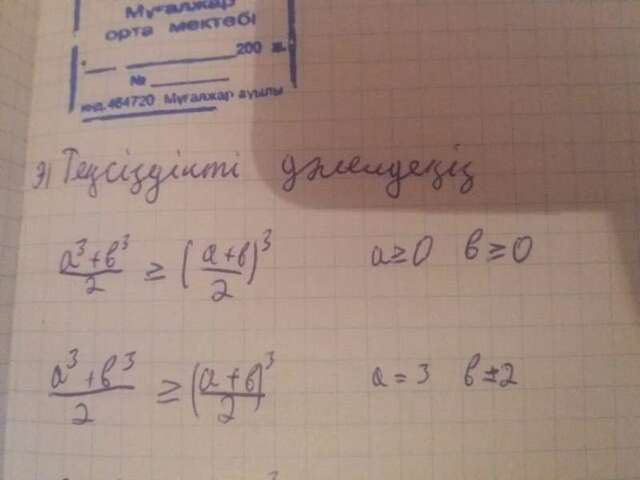 Мұғалжар
орта мектебі
200 ж.
№
инд.464720 Мұғалжар ауылы
э) Теңсіздікті дәлелдеңіз
a³+в³/2 ≥ (a+в/2)³ a≥0 в≥0
a³+в³/2 ≥ (a+в/2)³ a=3 в=2